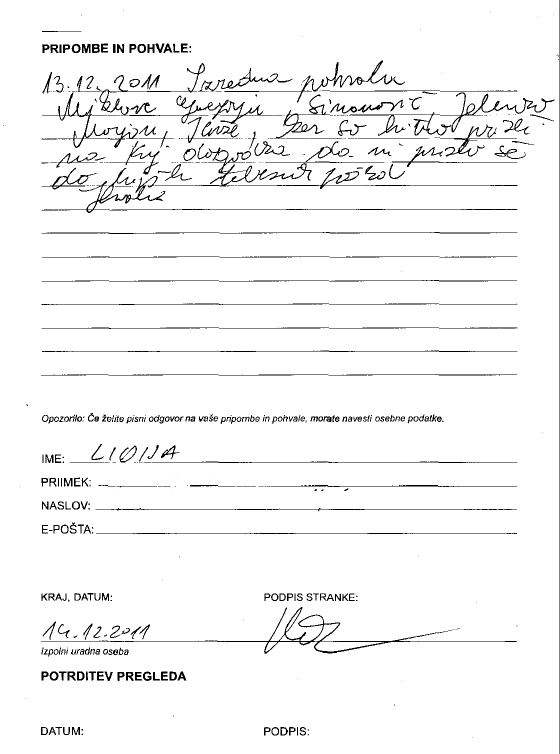 PRIPOMBE IN POHVALE:
13.12.2011 Izredna pohvala
Simonovič Jelenko
ker so hitro prišli
na kraj dogodka da ni prišlo še
do hujših telesnih poškodb
Hvala
Opozorilo: Če želite pisni odgovor na vaše pripombe in pohvale, morate navesti osebne podatke.
IME: LIDIJA
PRIIMEK:
NASLOV:
E-POŠTA:
KRAJ, DATUM: PODPIS STRANKE:
14.12.2011
Izpolni uradna oseba
POTRDITEV PREGLEDA
DATUM: PODPIS: